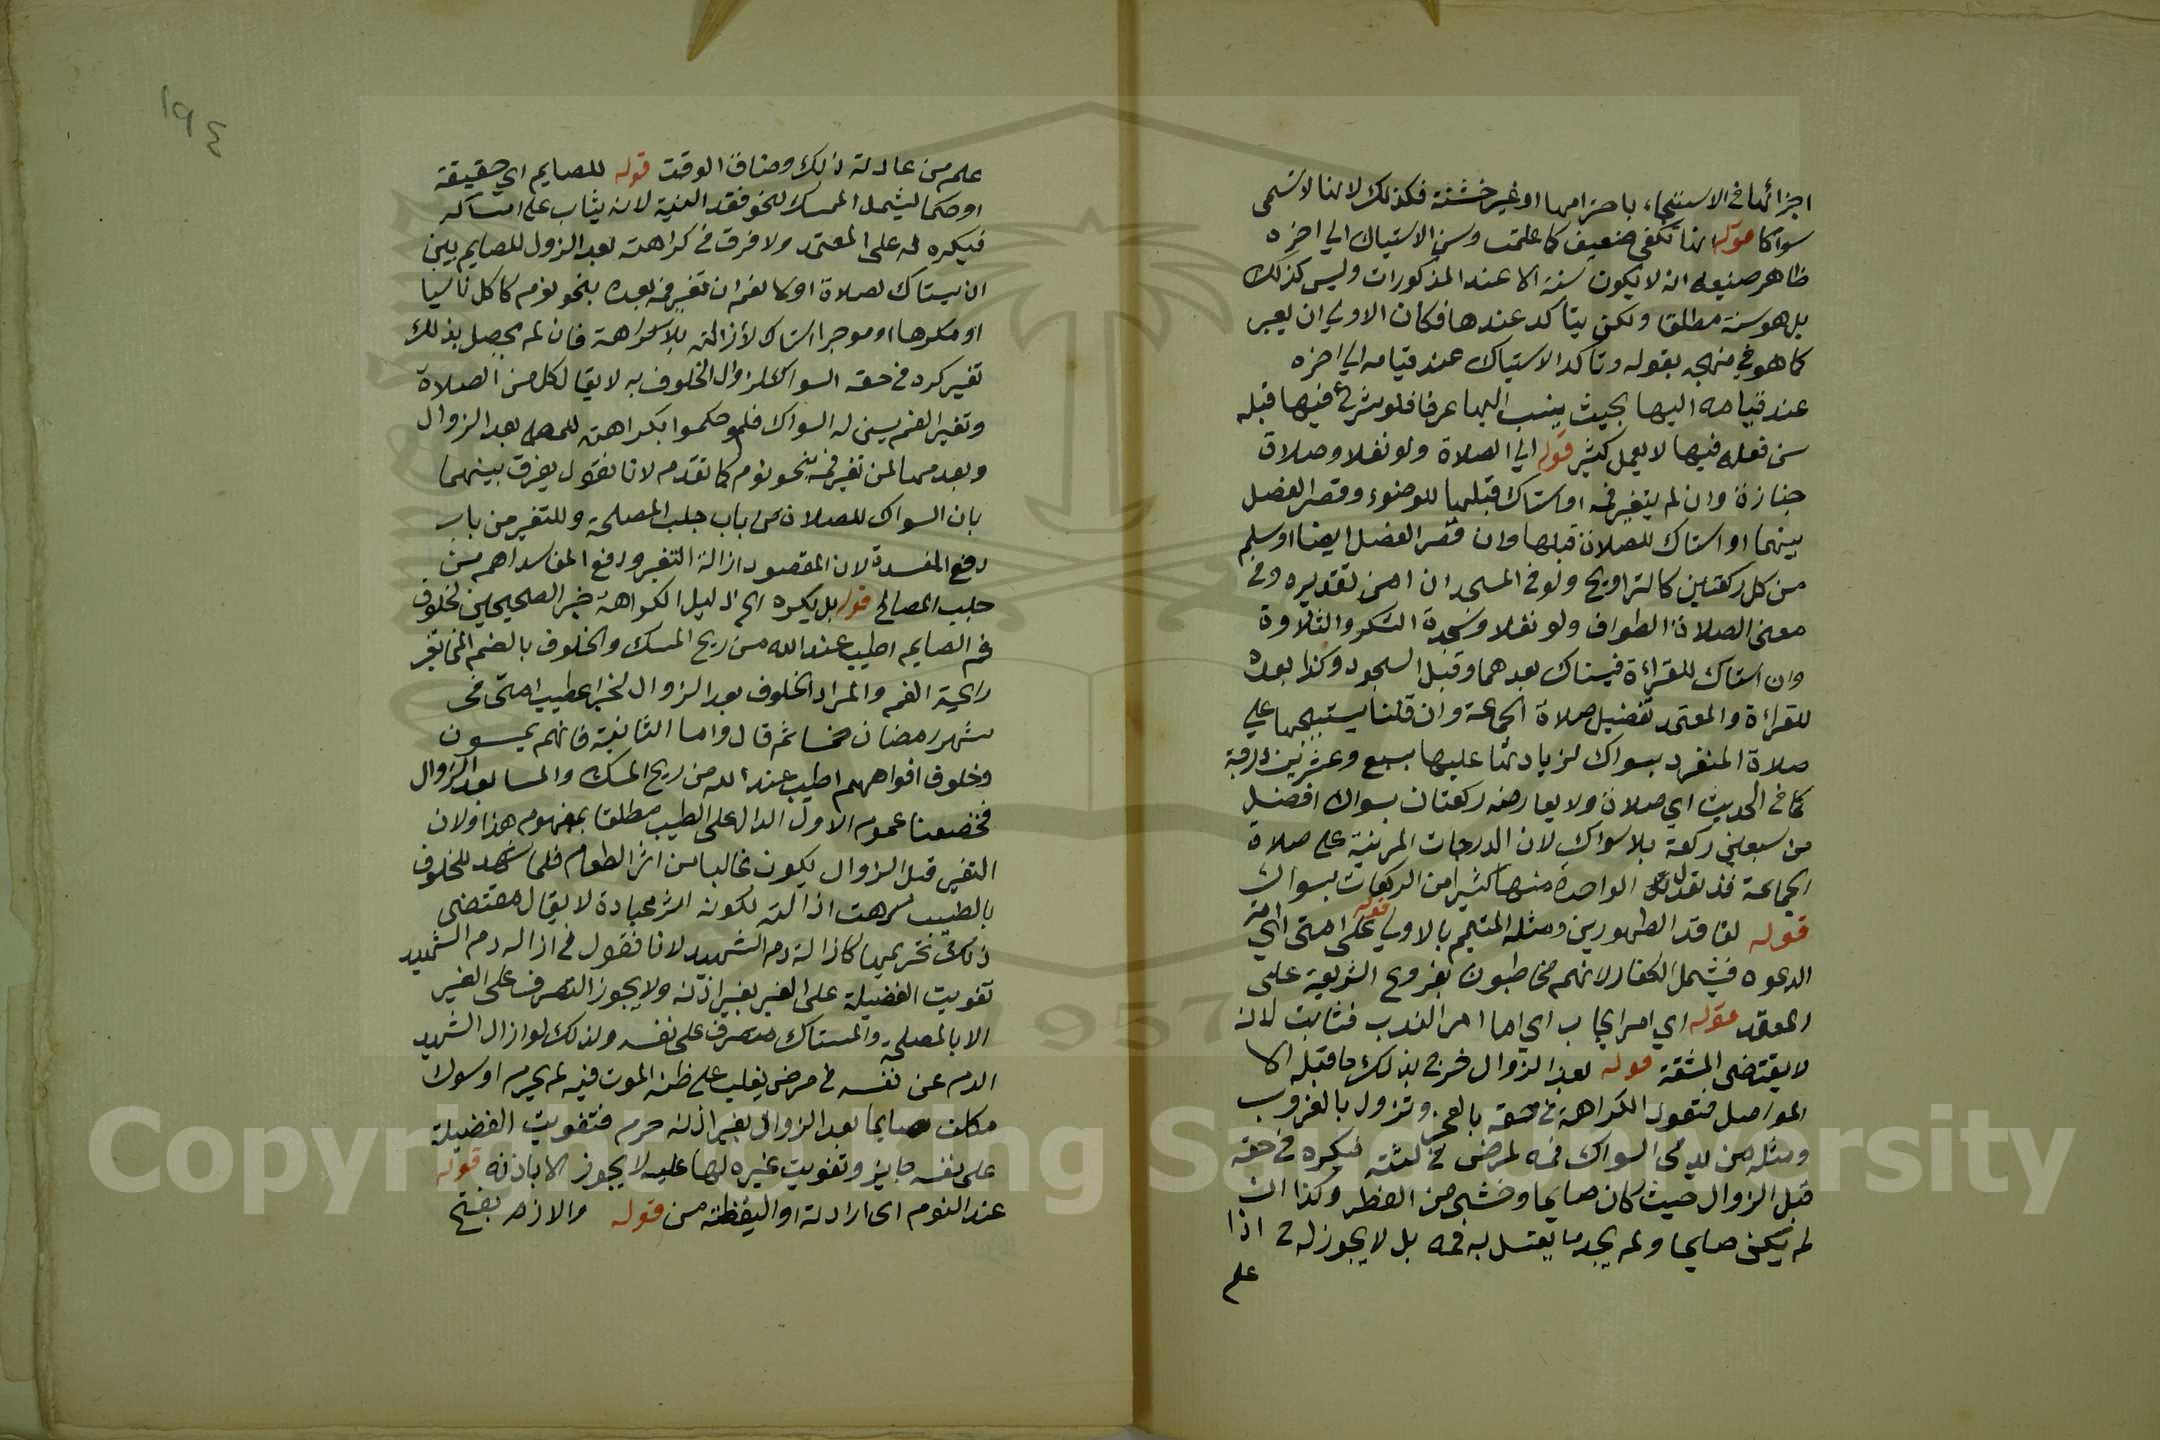 اجزائها في الاستنجاء باحترامها او غير خشنة فكذلك لانها لا تسمى
سواكا قوله انها تكفي ضعيف كما علمت وسن الاستياك الى اخره
ظاهر صنيعه انه لا يكون سنة الا عند المذكورات وليس كذلك
بل هو سنة مطلقا ولكن يتاكد عندها فكان الاولى ان يعبر
كما هو في منهجه بقوله وتاكد الاستياك عند قيامه الى اخره
عند قيامه اليها بحيث ينسب اليها عرفا فلو شرع فيها قبله
سن فعله فيها لا بعمل كثير قوله الى الصلاة ولو نفلا وصلاة
جنازة وان لم يتغير فمه او استاك قبلها للوضوء وقصر الفصل
بينهما او استاك للصلاة قبلها وان قصر الفصل ايضا او سلم
من كل ركعتين كالتراويح ولو في المسجد ان امن تقديره وفي
معنى الصلاة الطواف ولو نفلا وسجدة الشكر والتلاوة
وان استاك للقراءة فيستاك بعدهما وقبل السجود وكذا بعده
للقراءة والمعتمد تفضيل صلاة الجماعة وان قلنا بسنيتها على
صلاة المنفرد بسواك لزيادتها عليها بسبع وعشرين درجة
كما في الحديث اي صلاة ولا يعارضه ركعتان بسواك افضل
من سبعين ركعة بلا سواك لان الدرجات المرتبة على صلاة
الجماعة قد تعدل الواحدة منها كثيرا من الركعات بسواك
قوله لفاقد الطهورين ومثله المتيمم بالاولى قوله على امتي اي امة
الدعوه فيشمل الكفار لانهم مخاطبون بفروع الشريعة على
المعتمد قوله اي امر ايجاب اي اما امر الندب فثابت لانه
لا يقتضي المشقة قوله بعد الزوال خرج بذلك ما قبله الا
المواصل فتعود الكراهة في حقه بالفجر وتزول بالغروب
ومثله من يدمي السواك فمه لمرض في لثته فيكره في حقه
قبل الزوال حيث كان صايما وخشي من الفطر وكذا ان
لم يكن صايما ولم يجد ما يغسل به فمه بل لا يجوز له ح اذا
علم
١٩٤
علم من عادته ذلك وضاق الوقت قوله للصايم اي حقيقة
او حكما ليشمل الممسك لنحو فقد النية لانه يثاب على امساكه
فيكره له على المعتمد ولا فرق في كراهته بعد الزول للصايم بين
ان يستاك لصلاة او لا نعم ان تغير فمه بعده بنحو نوم كاكل ناسيا
او مكرها او موجرا استاك لازالته بلا كراهة فان لم يحصل بذلك
تغير كره في حقه السواك لزوال الخلوف به لا يقال كل من الصلاة
وتغير الفم يسن له السواك فلم حكموا بكراهته للمصلي بعد الزوال
وبعدمها لمن تغير فمه بنحو نوم كما تقدم لانا نقول يفرق بينهما
بان السواك للصلاة من باب جلب المصلحة وللتغير من باب
دفع المفسدة لان المقصود ازالة التغير ودفع المفاسد اهم من
جلب المصالح قوله بل يكره اي دليل الكراهة خبر الصحيحين لخلوف
فم الصايم اطيب عند الله من ريح المسك والخلوف بالضم المخا تغير
رايحة الفم والمراد الخلوف بعد الزوال لخبر اعطيت امتي في
شهر رمضان خمسا ثم قال واما الثانية فانهم يمسون
وخلوف افواههم اطيب عند الله من ريح المسك والمسا بعد الزوال
فخصصنا عموم الاول الدال على الطيب مطلقا بمفهوم هذا ولان
التغير قبل الزوال يكون غالبا من اثر الطعام فلما شهد للخلوف
بالطيب كرهت ازالته لكونه اثر عبادة لا يقال مقتضى
ذلك تحريمها كازالة دم الشهيد لانا نقول في ازاله دم الشهيد
تفويت الفضيلة على الغير بغير اذنه ولا يجوز التصرف على الغير
الا بالمصلحة والمستاك متصرف على نفسه ولذلك لو ازال الشهيد
الدم عن نفسه في مرض يغلب على ظنه الموت فيه لم يحرم او سوك
مكلف صايما بعد الزوال بغير اذنه حرم فتفويت الفضيلة
على نفسه جايز وتفويت غيره لها عليه لا يجوز الا باذنه قوله
عند النوم اي ارادته او اليقظة من قوله والازم بفتح
Copyright © King Saud University
1957